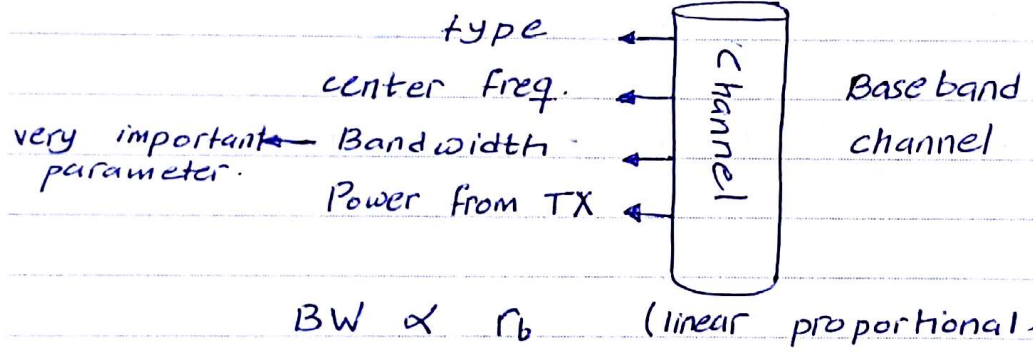 type
center freq.
very important Bandwidth
parameter.
Power from TX
Channel
Baseband
channel
BW ∝ rb (linear proportional.